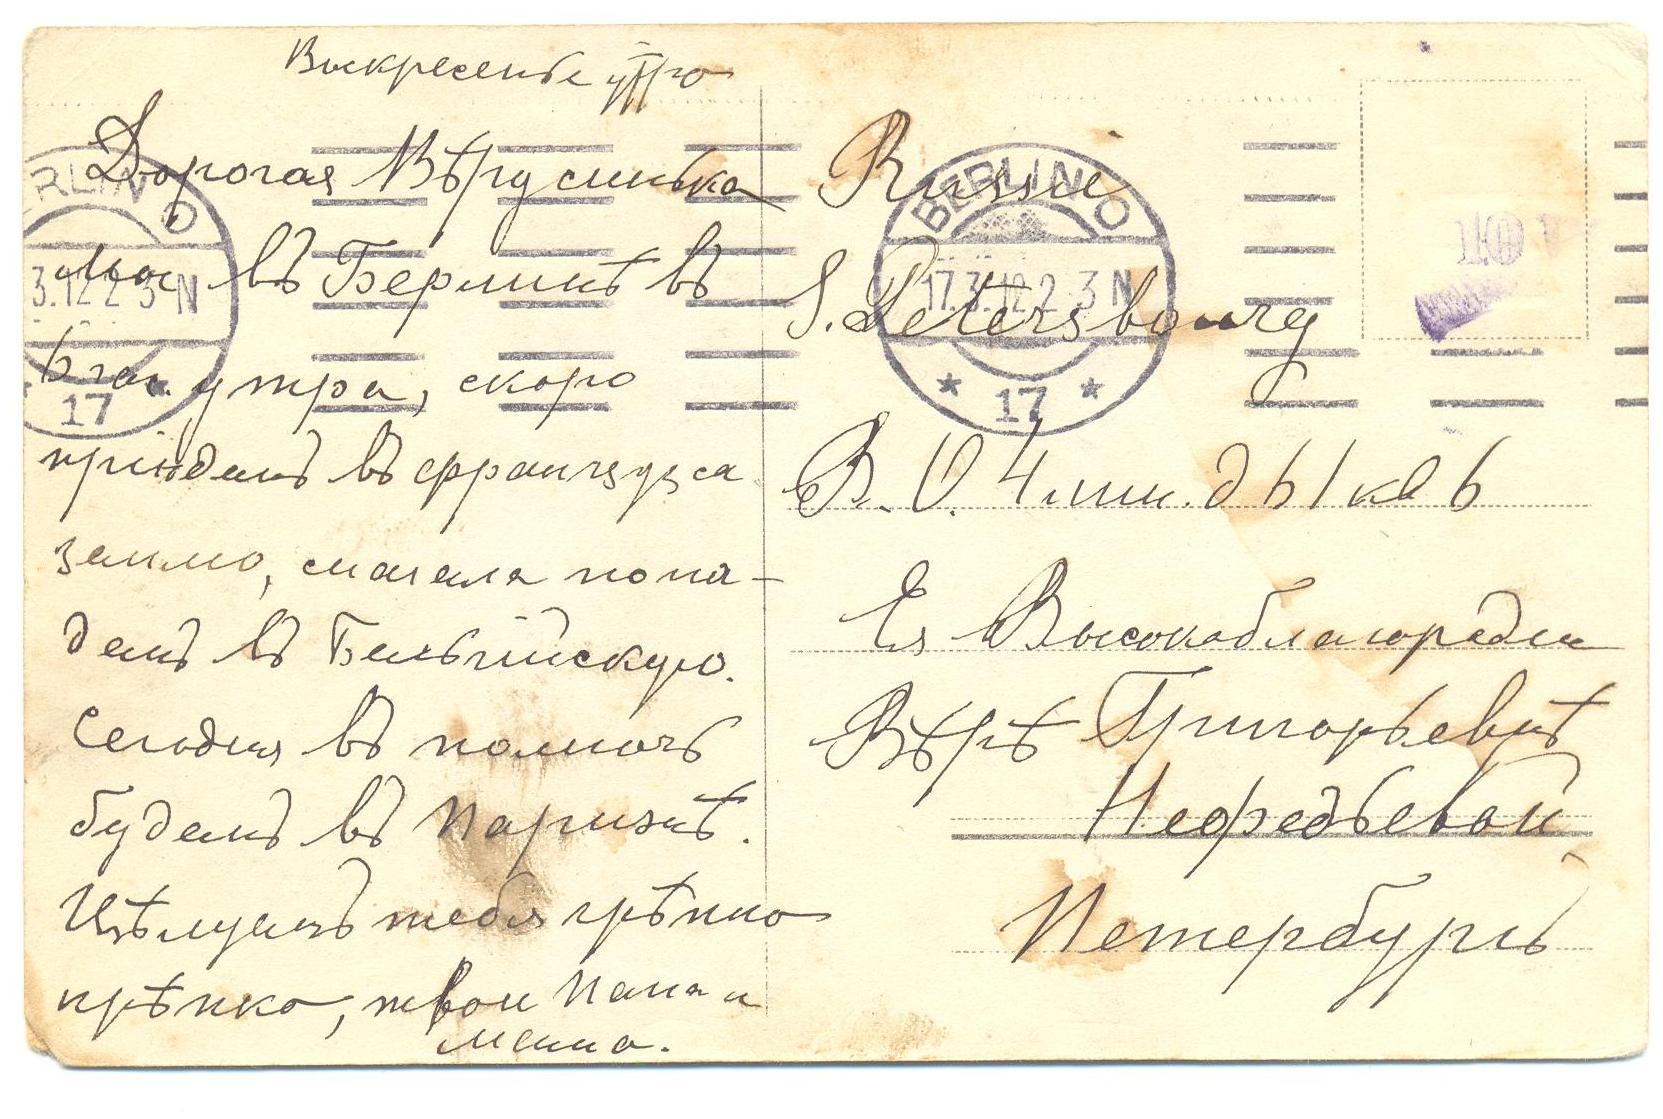 Воскресенье утро
Дорогая Вѣрусинька
мы въ Берлинѣ въ
6 час утра, скоро
пріѣдемъ въ французса
землю, сначала попа-
демъ въ Бельгійскую.
Сегодня въ полночь
будемъ въ Парижѣ.
Цѣлуемъ тебя крѣпко
крѣпко, твои Папа и
мама.
Russie
S. Petersbourg
В. О. 4 лин. д 61 кв 6
Ея Высокоблагородiи
Вѣрѣ Григорьевнѣ
Нефедьевой
Петербургъ
BERLIN O
17.3.12.2-3 N
* 17 *
RLIN O
3.12.2-3 N
17
10